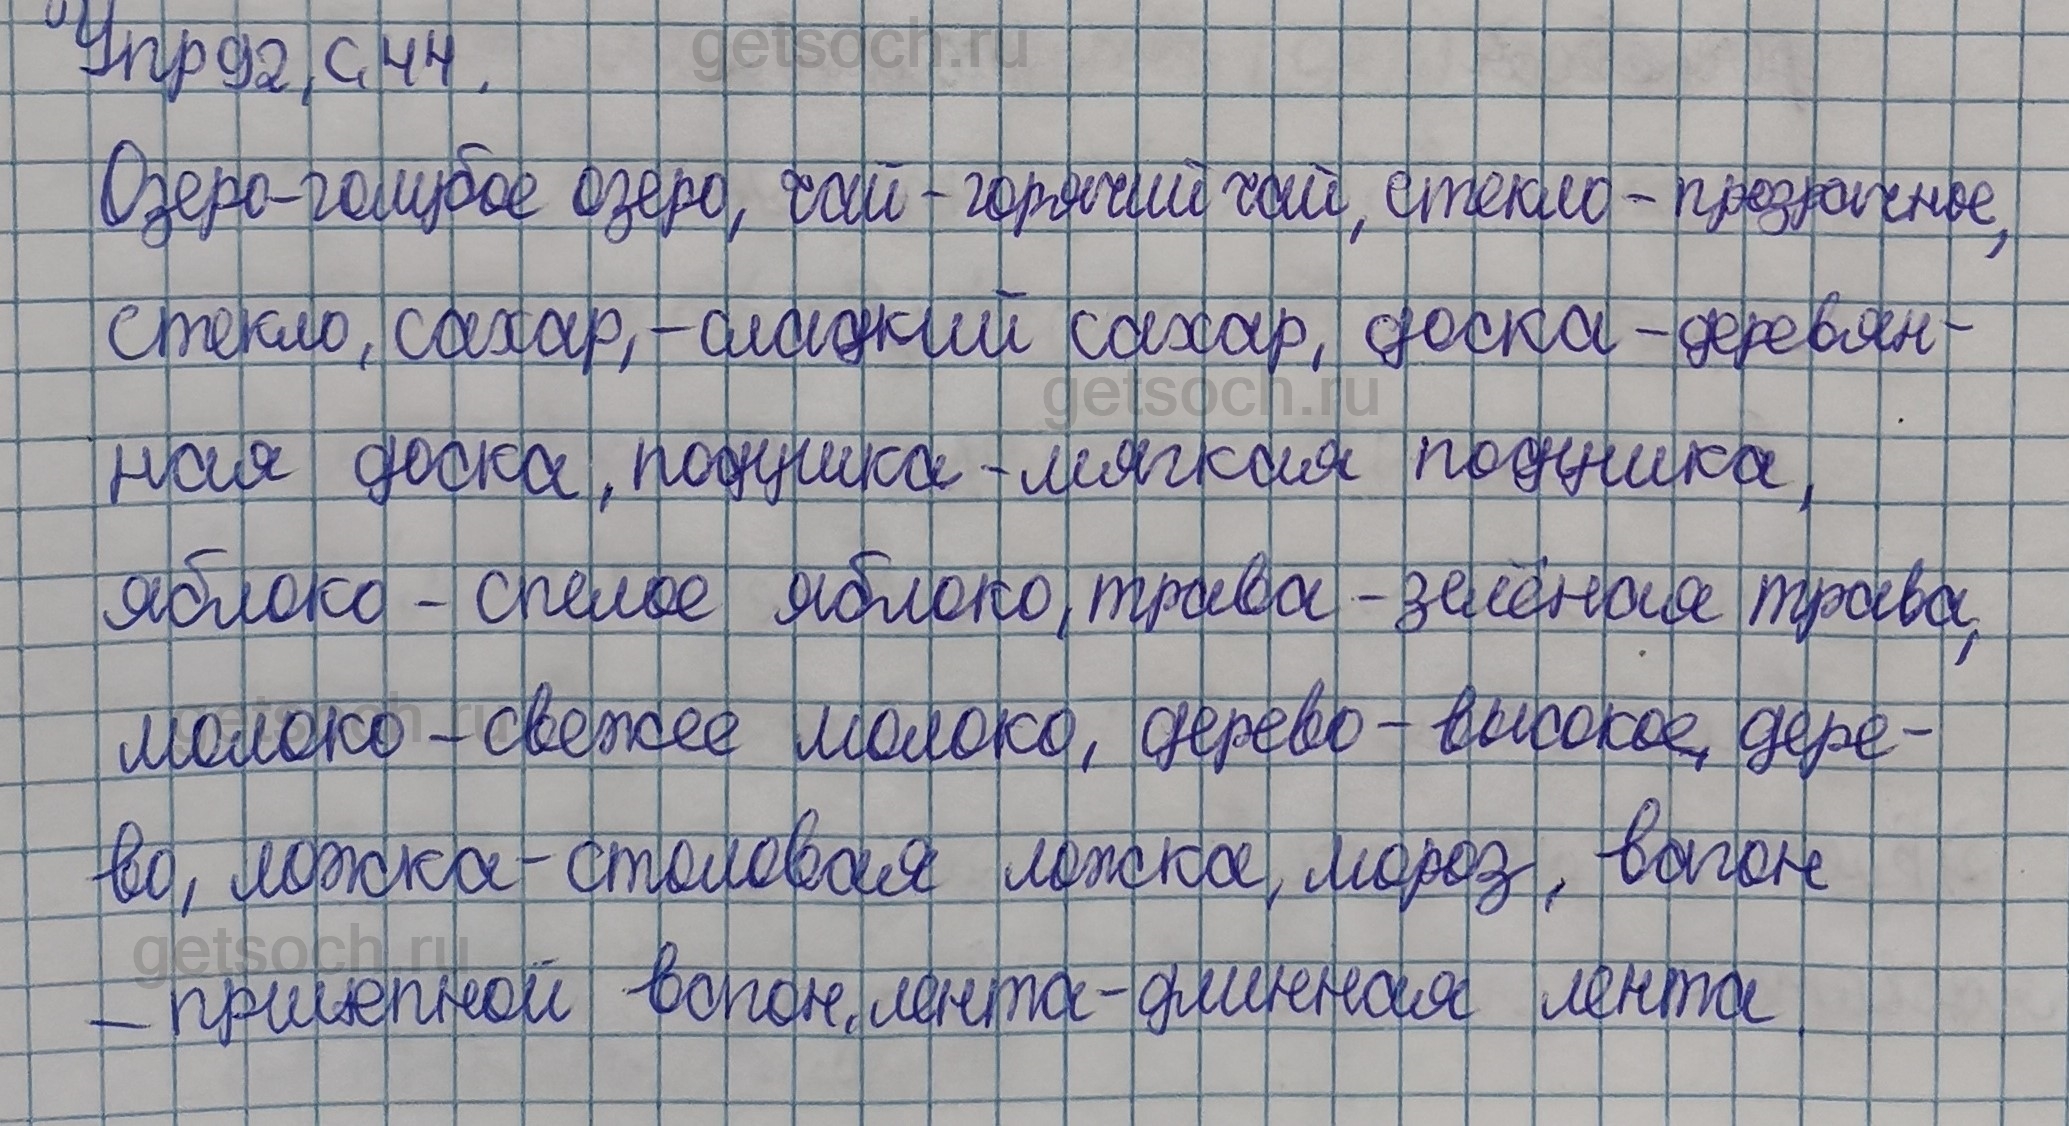 Упр 92, с. 44.
getsoch.ru
Озеро-голубое озеро, чай - горячий чай, стекло - прозрачное,
стекло, сахар, - сладкий сахар, доска - деревян-
getsoch.ru
ная доска, подушка - мягкая подушка,
яблоко - спелое яблоко, трава - зелёная трава,
getsoch.ru
молоко - свежее молоко, дерево - высокое, дере-
во, ложка - столовая ложка, мороз, вагон
getsoch.ru
- прицепной вагон, лента - длинная лента